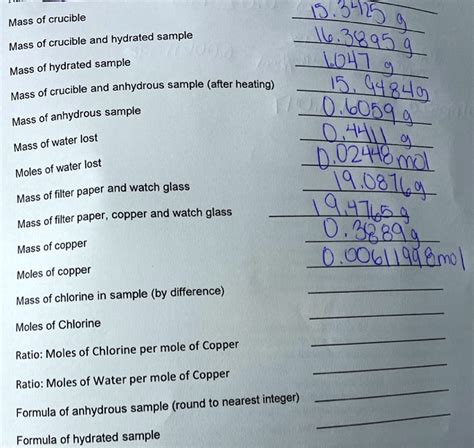 Mass of crucible 15.3425 g
Mass of crucible and hydrated sample 16.3895 g
Mass of hydrated sample 1.047 g
Mass of crucible and anhydrous sample (after heating) 15.9484g
Mass of anhydrous sample 0.6059 g
Mass of water lost 0.4411 g
Moles of water lost 0.02448 mol
Mass of filter paper and watch glass 19.0876g
Mass of filter paper, copper and watch glass 19.4765 g
Mass of copper 0.3889 g
Moles of copper 0.00611998mol
Mass of chlorine in sample (by difference)
Moles of Chlorine
Ratio: Moles of Chlorine per mole of Copper
Ratio: Moles of Water per mole of Copper
Formula of anhydrous sample (round to nearest integer)
Formula of hydrated sample